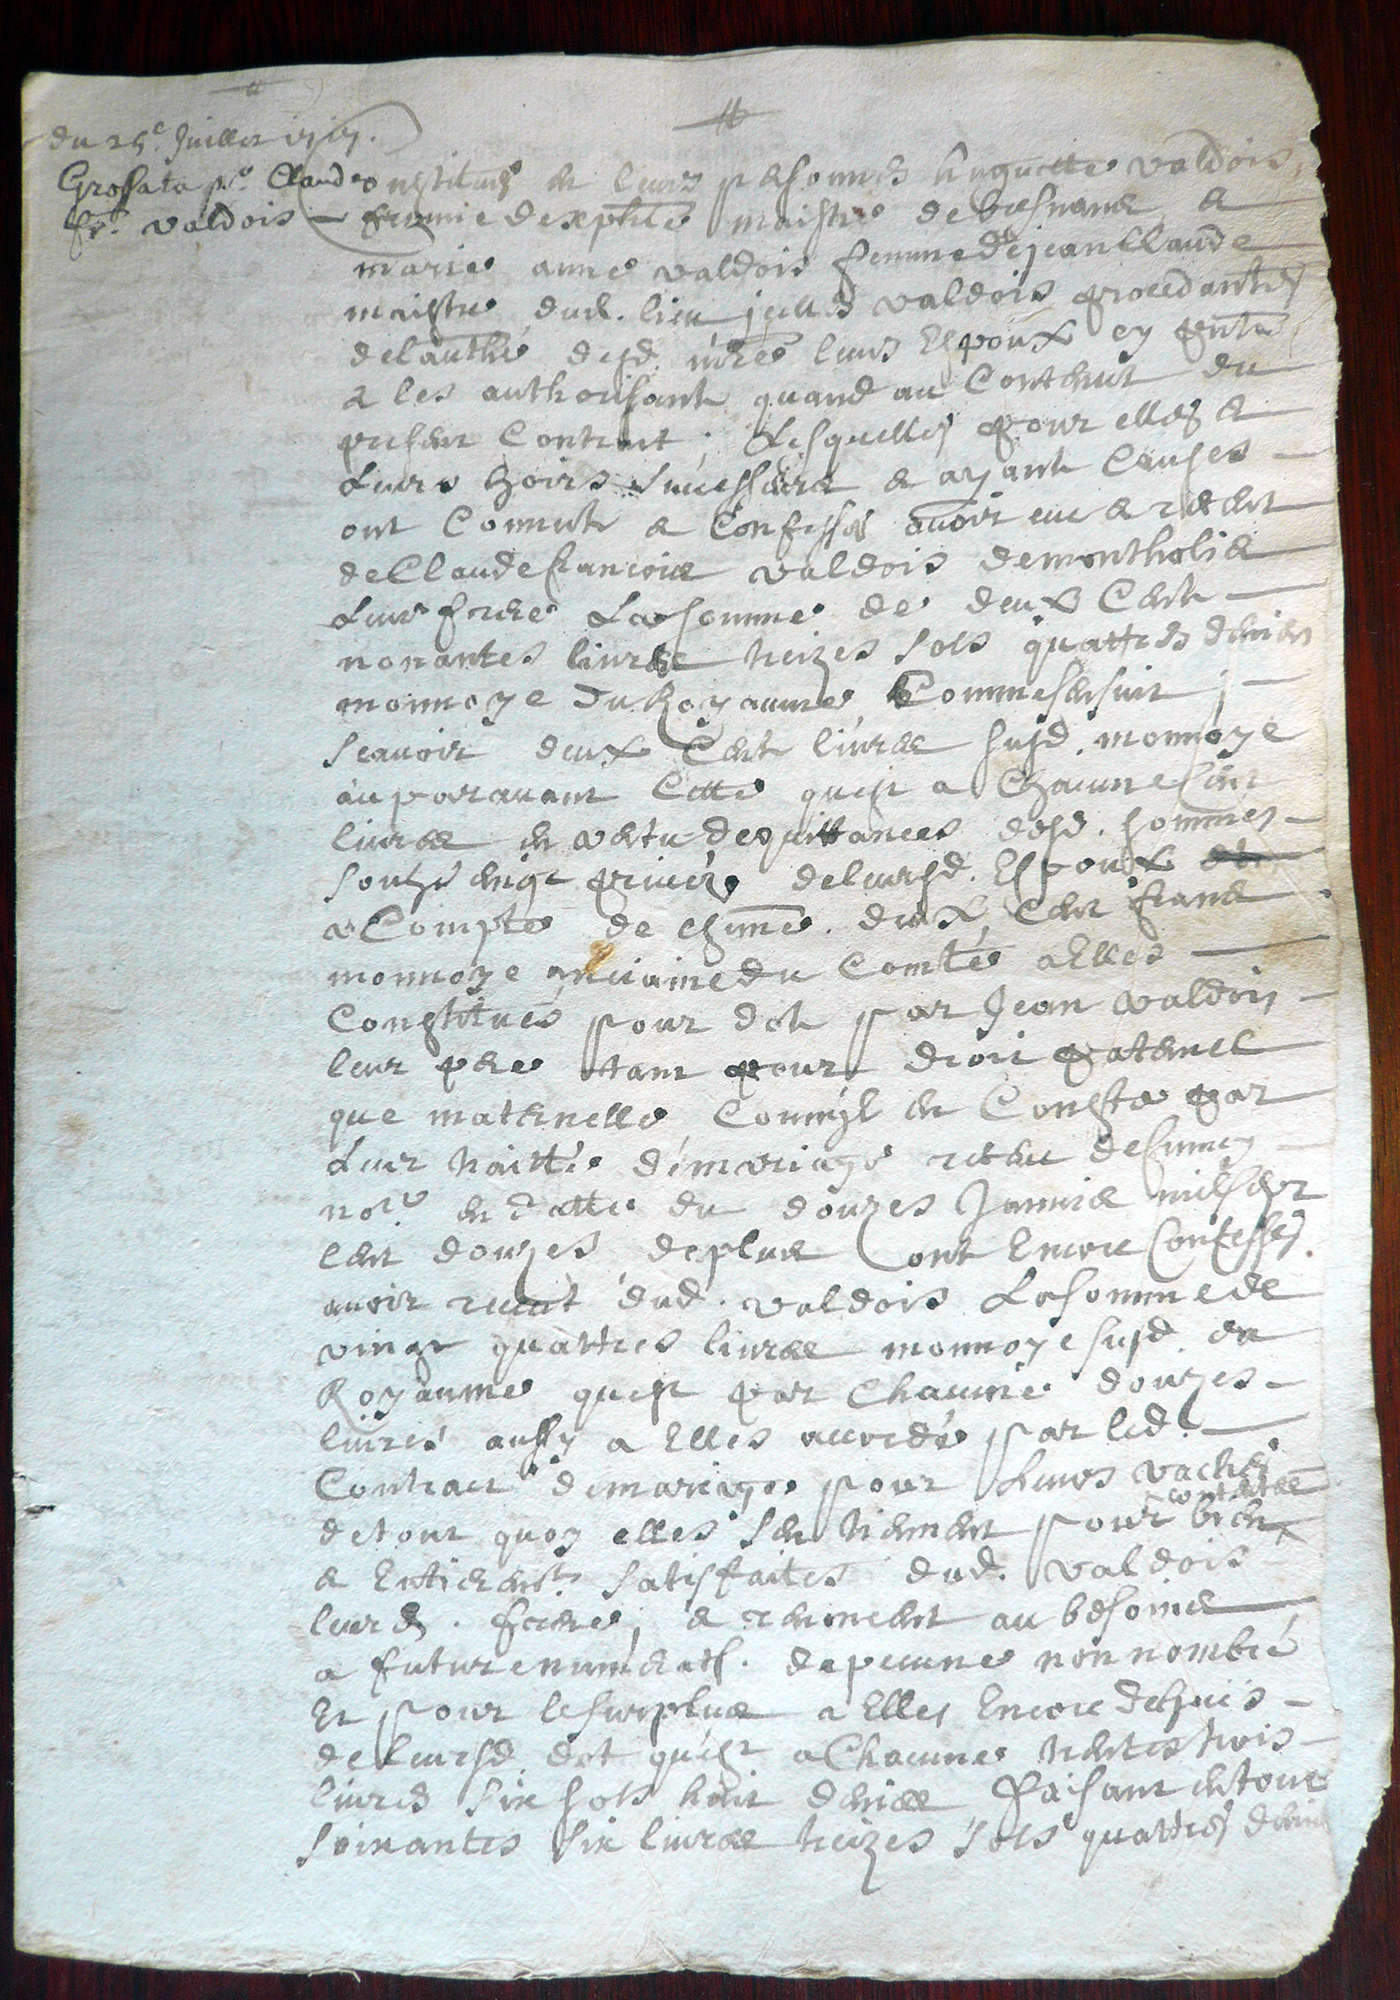 du 25e. Juillet 1717.
Grossata pr. Claude
fr. valdois
Constitués en leurs personnes huguette valdois
femme dexphle maistre de & 
marie anne valdois femme de jean Claude
maistre dud. lieu jcelles valdois procedantes
de lauthe desd. leurs Espoux cy pnts
& les authorisants quand au Contenut du
present Contract, Lesquelles pour elles &
Leurs hoirs successeurs & ayant Causes
ont Connut & Confessés avoir eu & receut
de Claude francois valdois de montholie
Leur frere La somme de deux Cent
nonantes livres treizes sols quattres deniers
monnoye du Royaume Comme sensuit ;
scavoir deux Cent livres susd. monnoye
auparavant Cette quest a Chacune Cent
livres en vertu de quittances desd. sommes
soubs seing privéz de leursd. Espoux
a Compte de chune. deux Cent francs
monnoye anciaine du Comté a Elles
Constitués pour dot par Jean valdois
leur pere tant pour droit paternel
que maternelle Comm'jl en Conste par
Leur traitté de mariage receu de
notre. en datte du douzes Janvier mil sept
Cent douzes de plus ont Encore Confessés
avoir receut dud. valdois La somme de
vingt quattres livres monnoye susd. du
Royaume quest par Chacune douzes
livres aussy a Elles accordé par led.
Contract de mariage pour Leurs vaches
de tout quoy elles sen tiennent pour bien contentes
& Entierent. satisfaites dud. valdois
leurd. frere, & renoncent au besoins
a future numerat. de pecune non nombré
Et pour le surplus a Elles Encore dehues
de leursd. dot quest a Chacune trentes trois
livres six sols huit deniers faisant en tout
soixantes six livres treizes sols quattres deniers